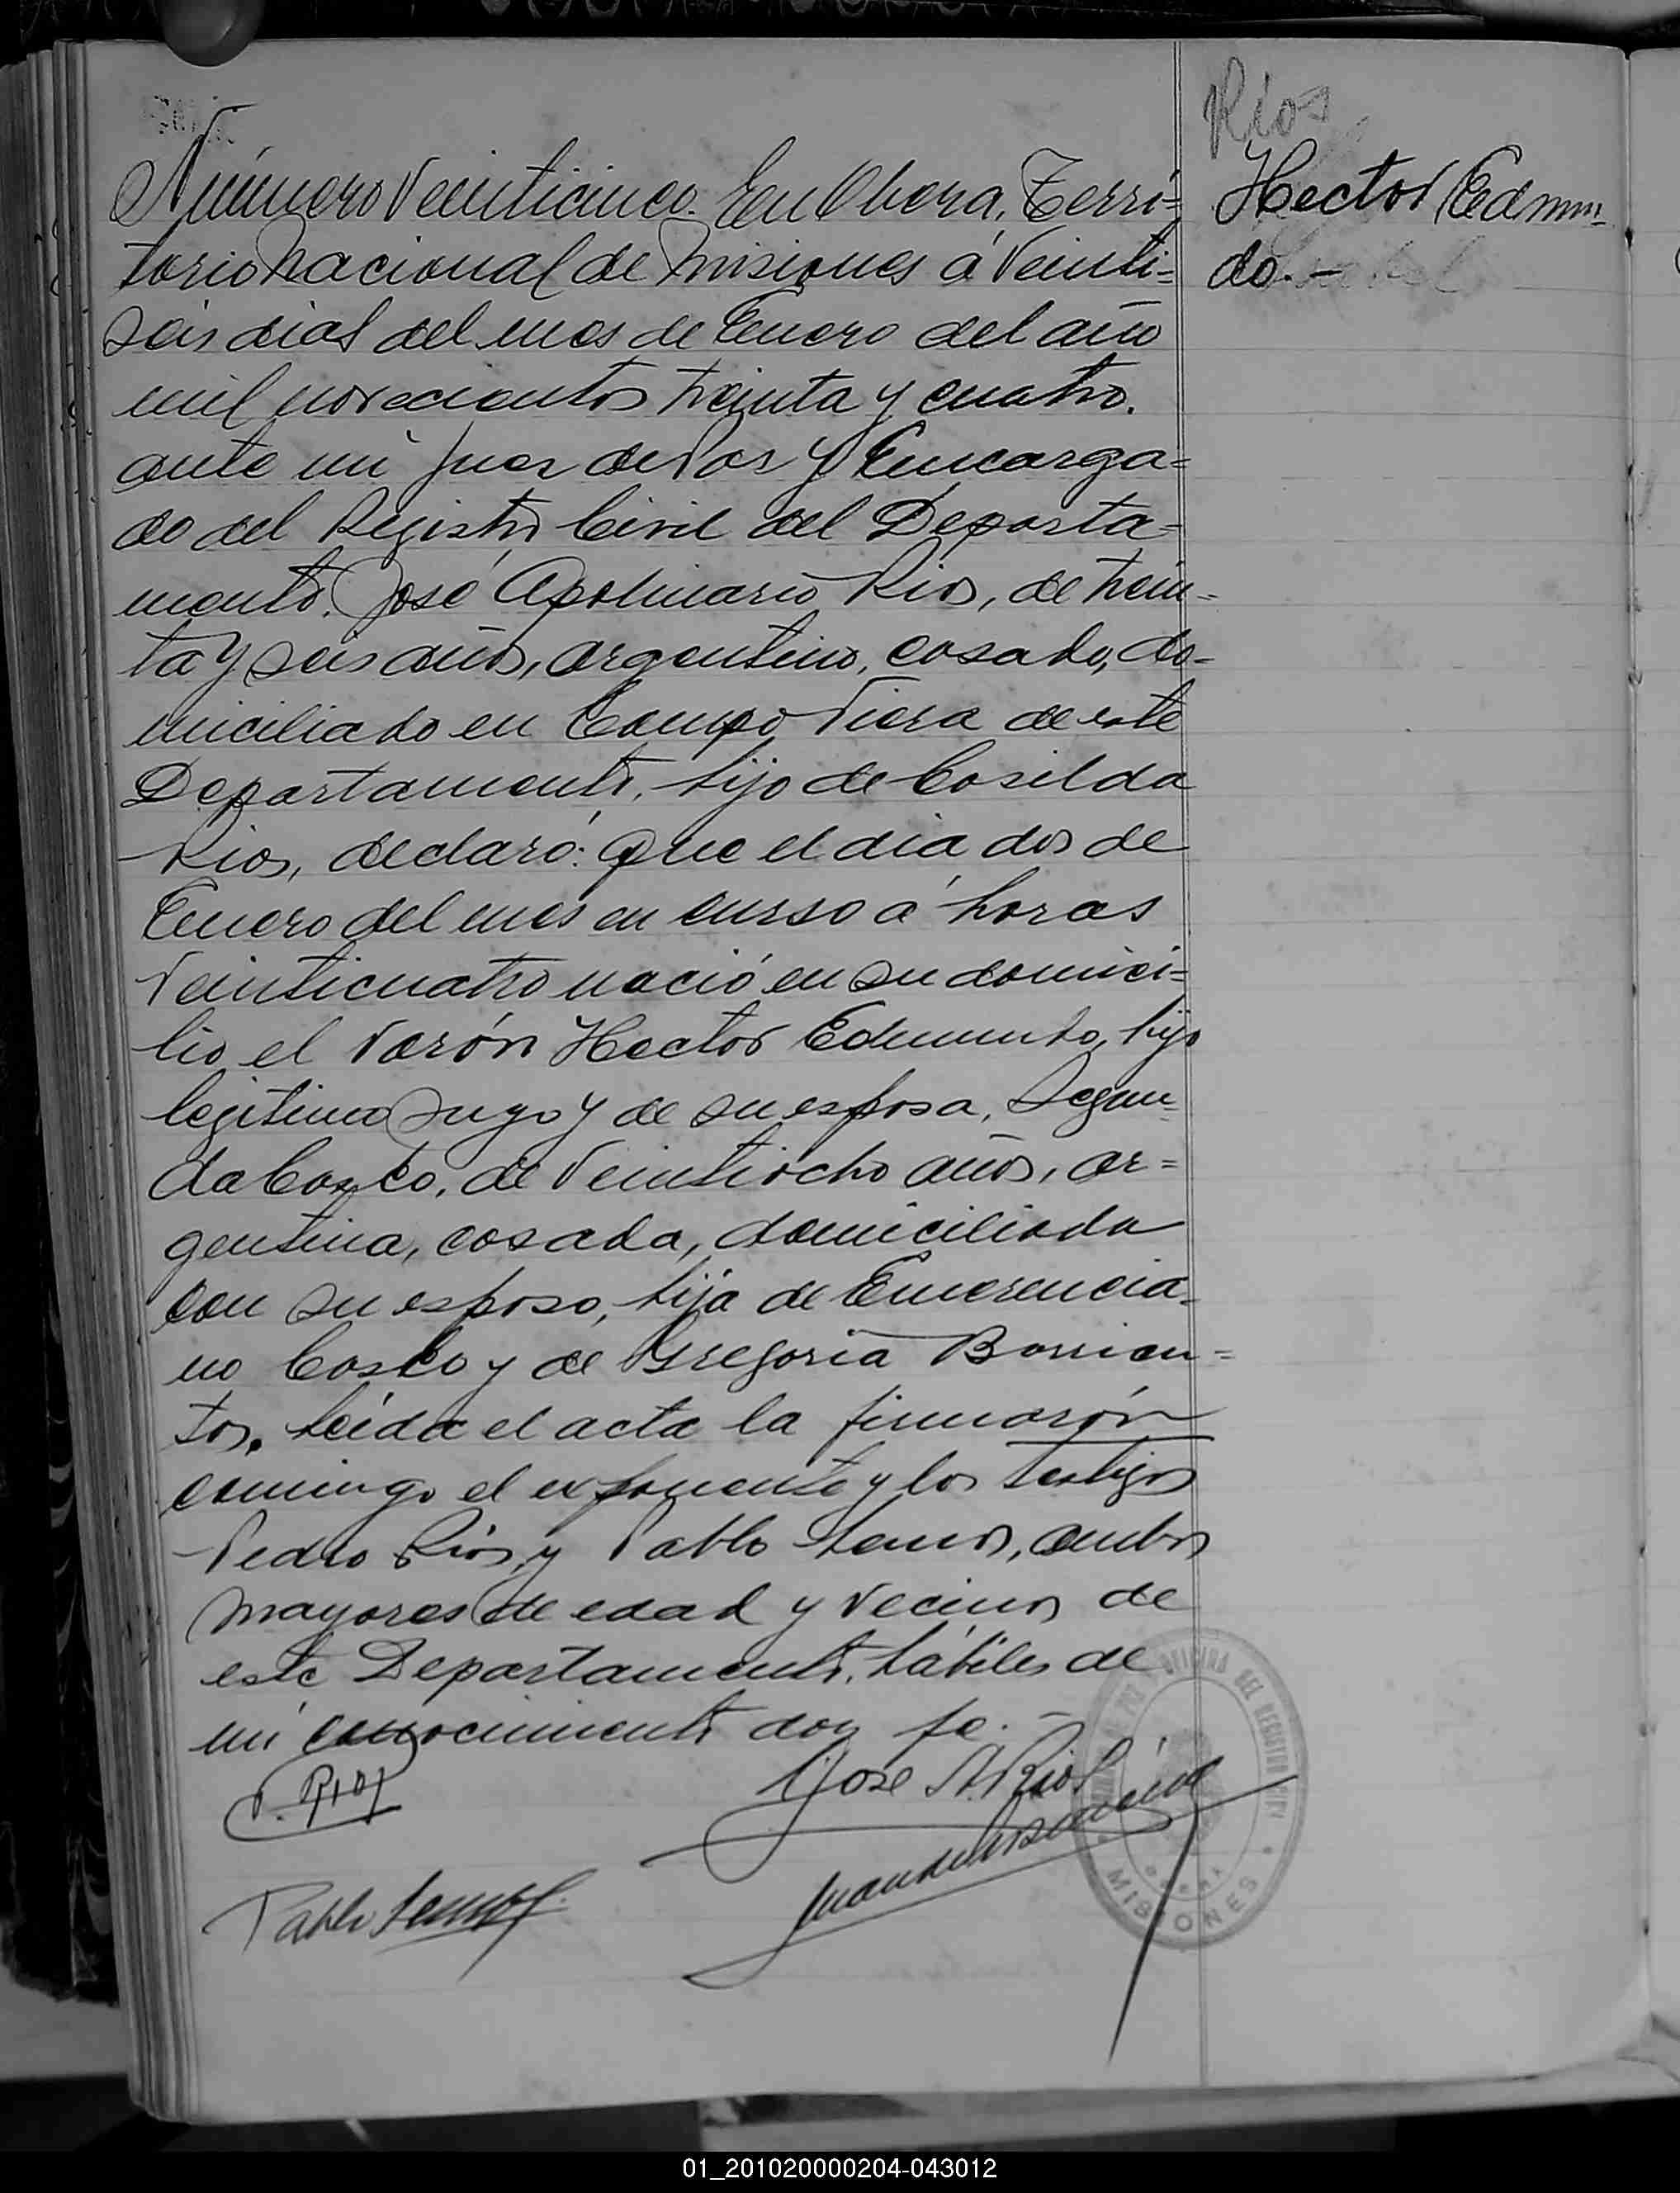 Rios
Hector Edmun-
do.-
Número Veinticinco. En Obera, Terri=
torio Nacional de Misiones á Veinti=
seis dias del mes de Enero del año
mil novecientos treinta y cuatro.
ante mi Juez de Paz y Encarga=
do del Registro Civil del Departa=
mento. José Apolinario Rios, de trein-
ta y seis años, argentino, casado, do-
miciliado en Campo Viera de este
Departamento, hijo de Casilda
Rios, declaró: Que el dia dos de
Enero del mes en curso á horas
Veinticuatro nació en su domici=
lio el Varón Hector Edmundo, hijo
legitimo suyo y de su esposa, Segun-
da, de Veintiocho años, ar=
gentina, casada, domiciliada
con su esposo, hija de Emerencia-
no y de Gregoria Barrien=
tos. Leída el acta la firmarón
comingo el exponente y los testigos
Pedro Rios, y Pablo, ambos
mayores de edad y Vecinos de
este Departamento, hábiles de
mi conocimiento doy fe.-
P. Rios
José A. Rios
Pablo
OFICINA DEL REGISTRO CIVIL
MISIONES
01_201020000204-043012